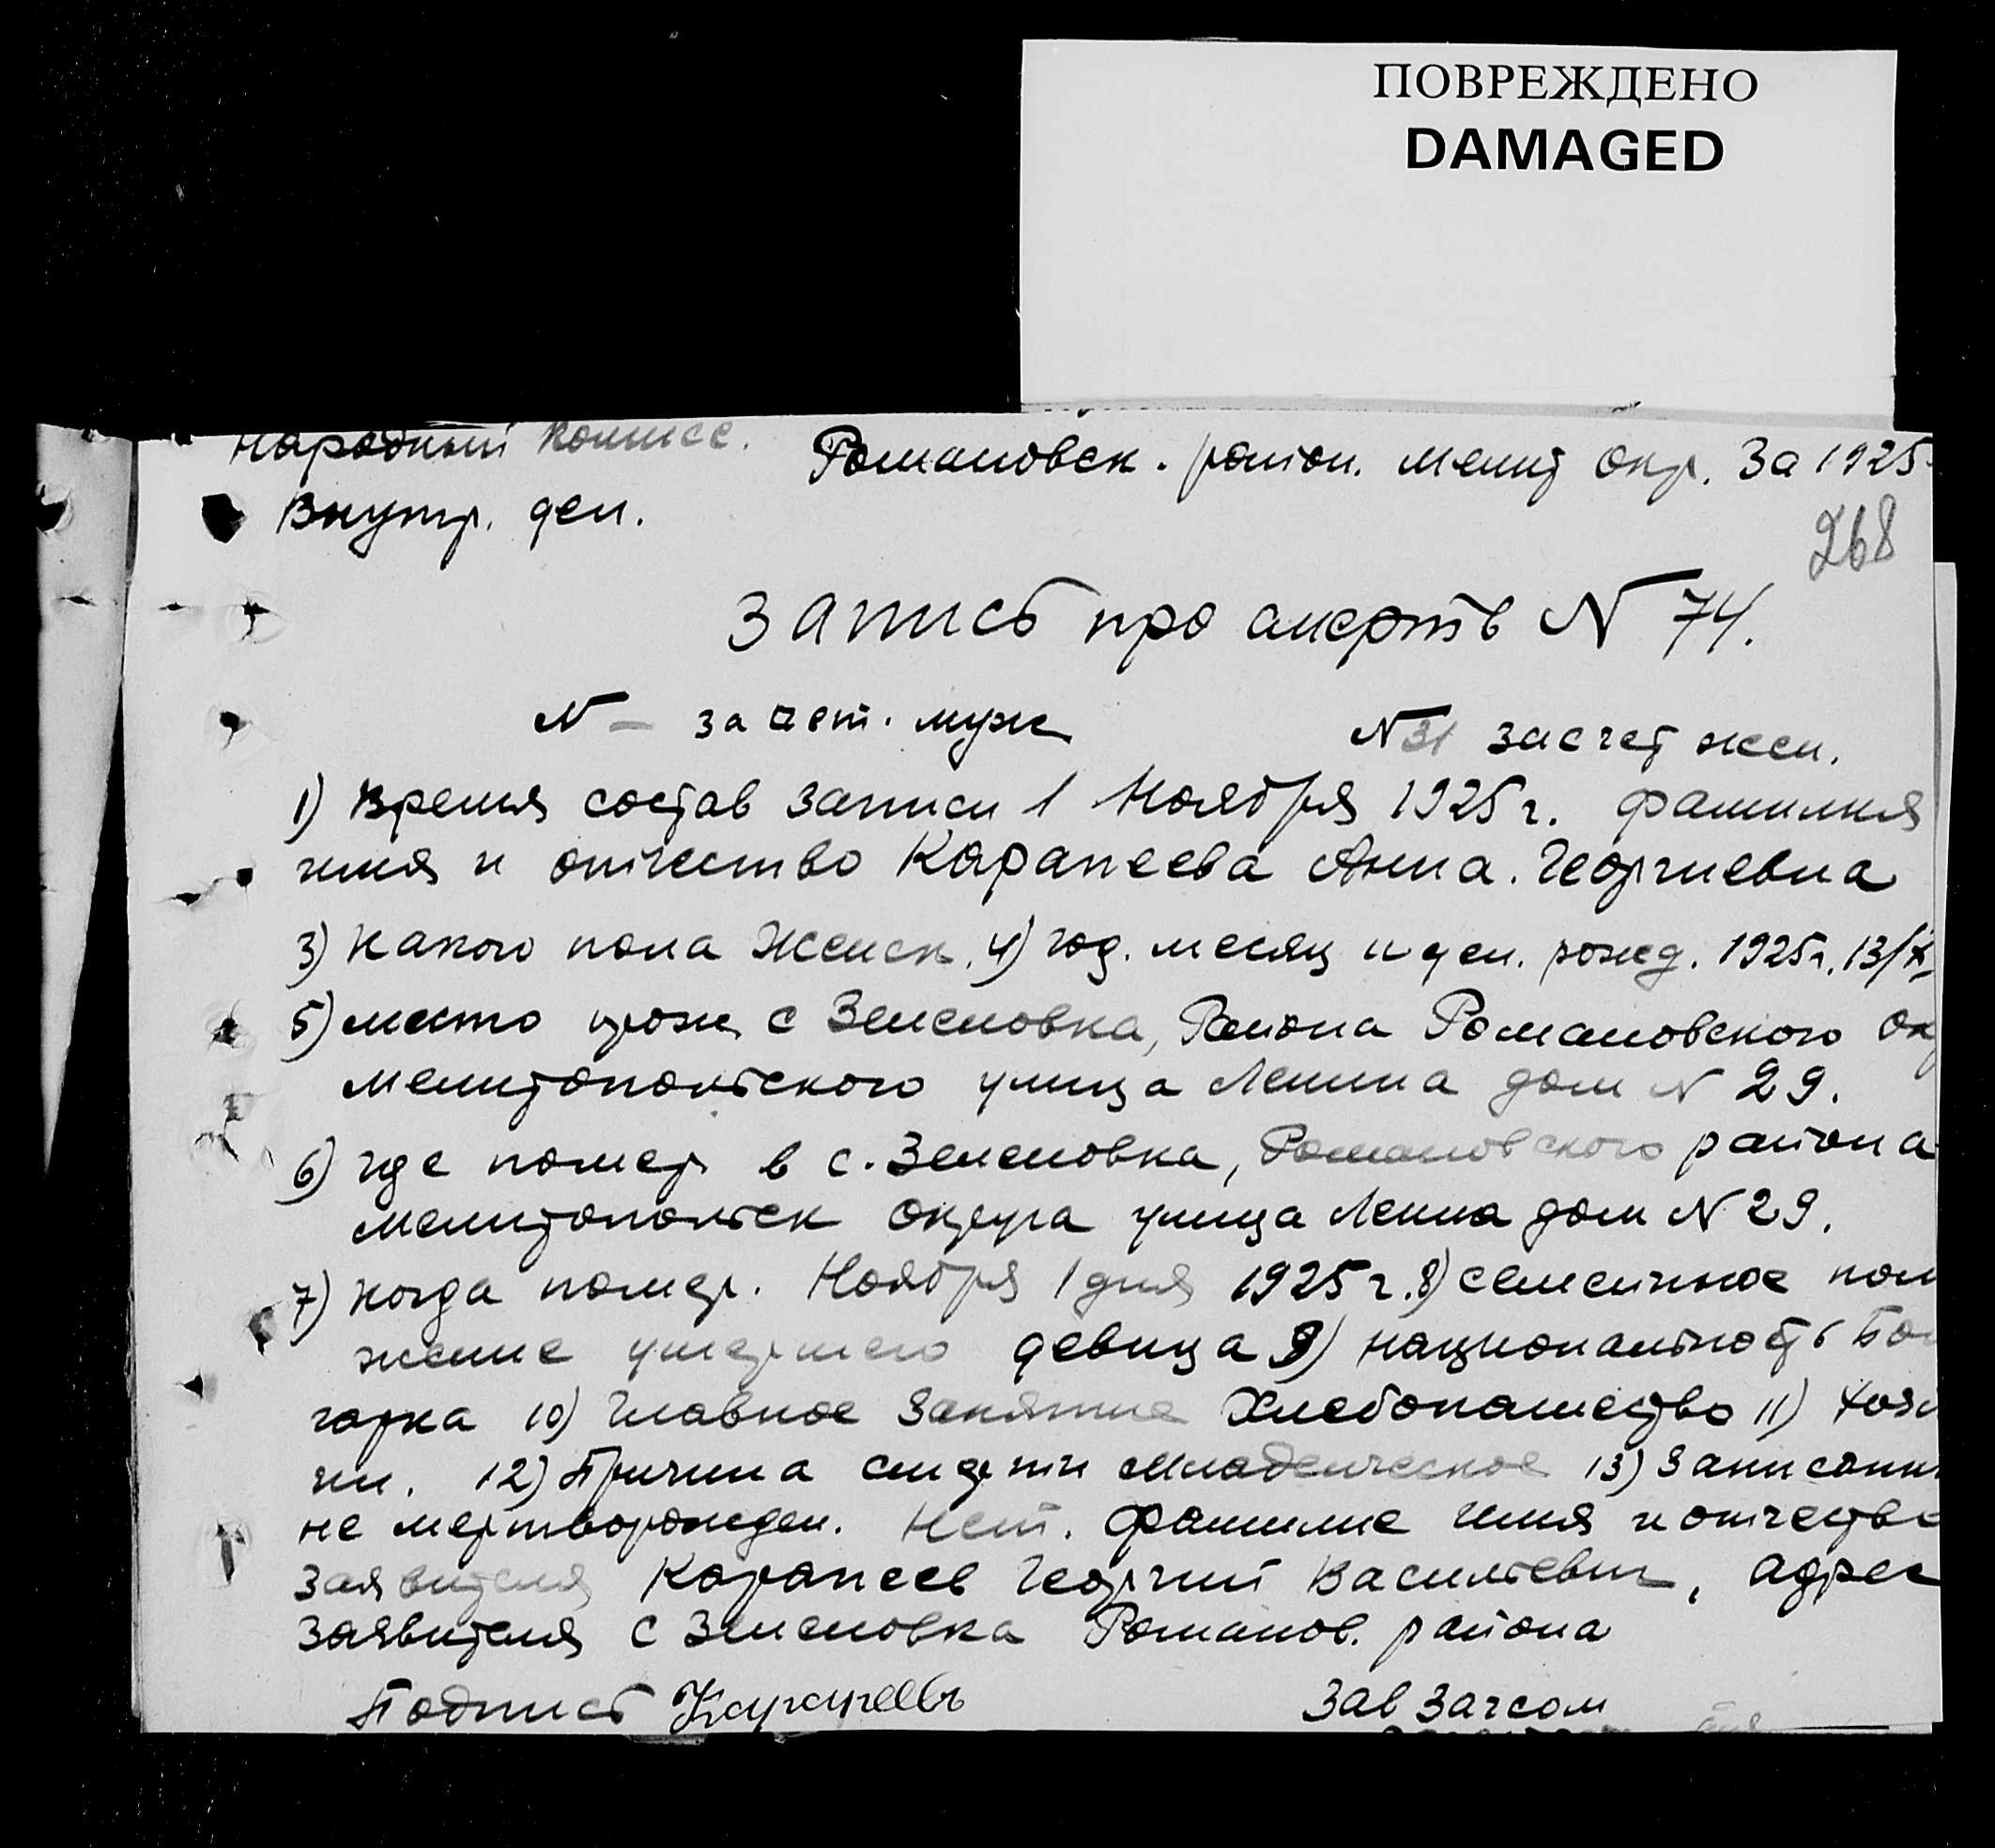 ПОВРЕЖДЕНО
DAMAGED
Народный комисс. Романовск. район. Мелит окр. За 1925
Внутр. дел.
268
Запись про смерть N 74.
N – за счет. муж N 31 за счет жен.
1) Время состав записи 1 Ноября 1925 г. фамилия
имя и отчество Карапеева Анна. Георгиевна
3) какого пола Женск. 4) год. месяц и ден. рожд. 1925 г. 13/X
5) место прож с Зеленовка, Района Романовского ок
Мелитопольского улица Ленина дом N 29.
6) где помер в с. Зеленовка, Романовского района
Мелитопольск округа улица Ленина дом N 29.
7) когда помер. Ноября 1 дня 1925 г. 8) семейное пол
жение умершего девица 9) национальность Бол
гарка 10) Главное Занятие Хлебопашество 11) хозя
ин. 12) Причина смерти Младенческое 13) Записанн
не мерторожден. Нет. Фамилие имя и отчество
заявителя Карапеев Георгий Васильевич, адрес
заявителя с Зеленовка Романов. района
Подпись Карапеевъ Зав Загсом